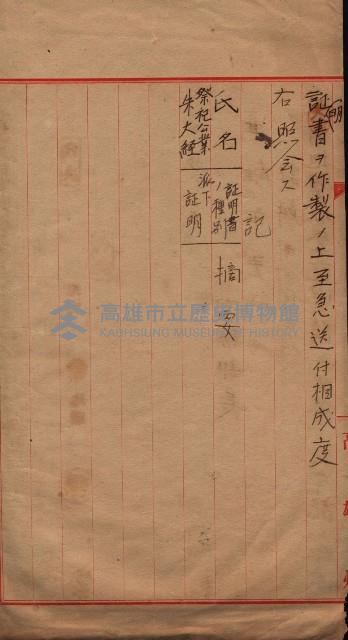 証明書ヲ作製ノ上至急送付相成度
右照会ス
記
氏名
証明書ノ種別
摘要
祭祀公業朱大経
派下証明
高雄州
高雄市立歷史博物館
KAOHSIUNG MUSEUM OF HISTORY